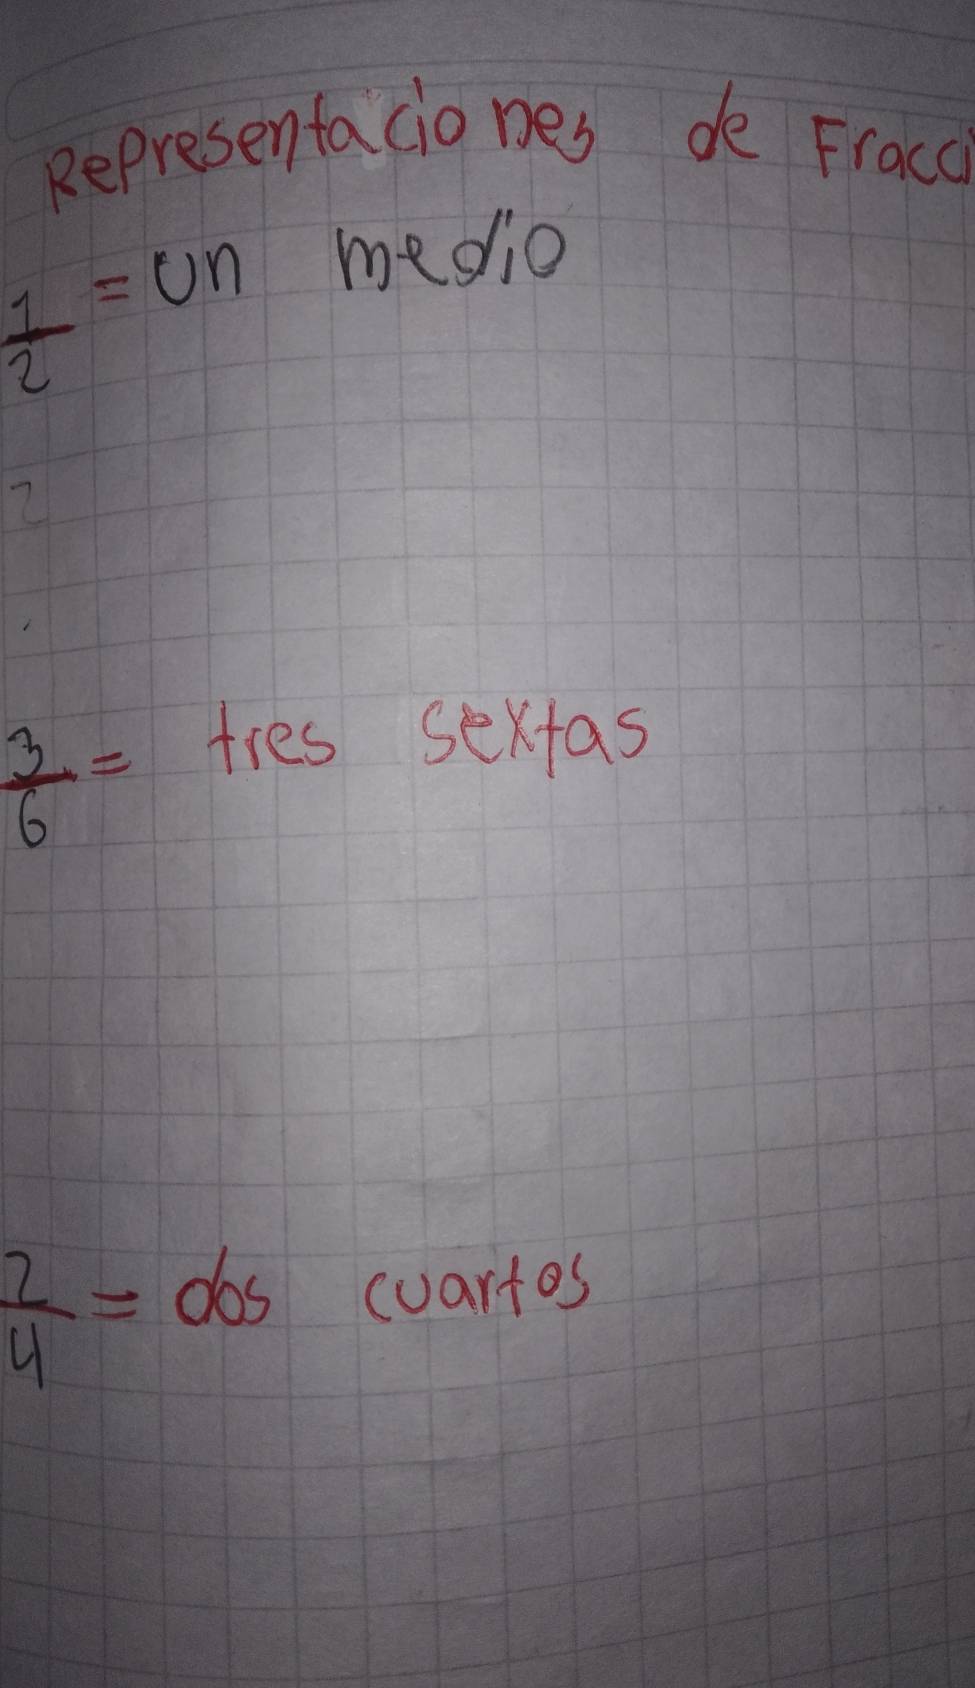 Representaciones de Fracci
1/2 = un medio
2
3/6 = tres sextas
2/4 = dos cuartos